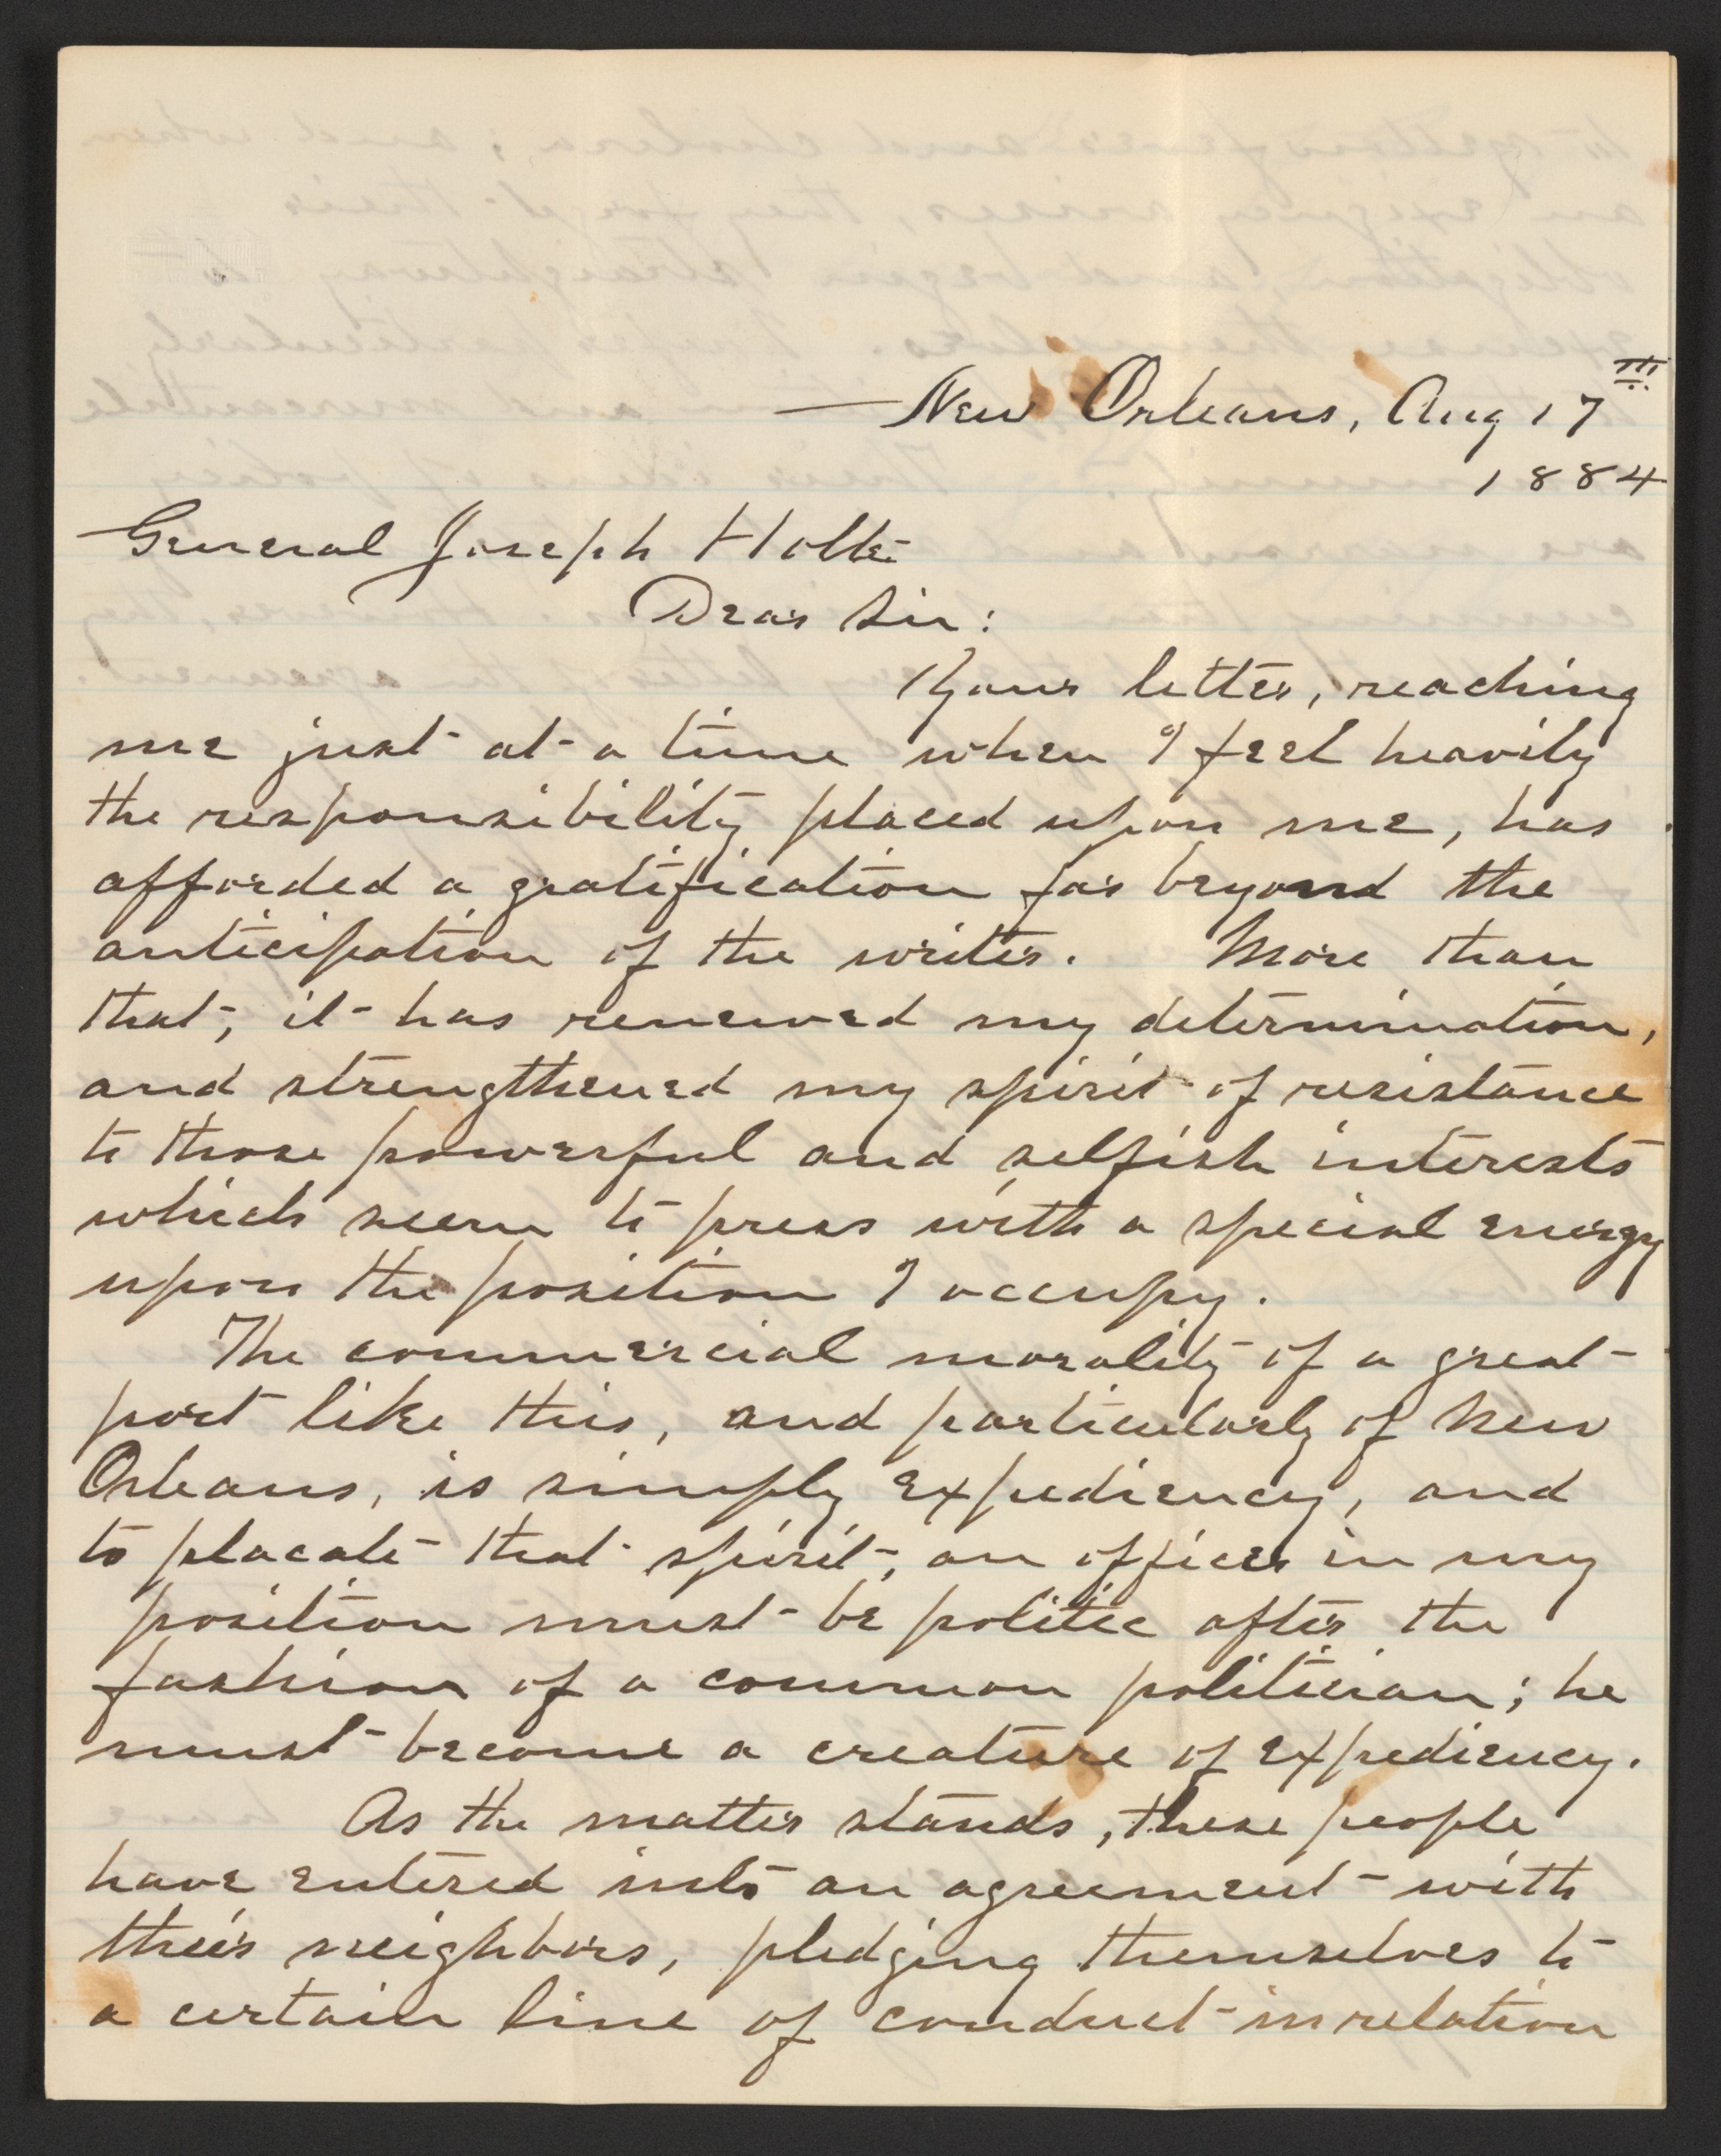 New Orleans, Aug 17th
1884
General Joseph Holt
Dear Sir:
Your letter, reaching
me just at a time when I feel heavily
the responsibility placed upon me, has
afforded a gratification far beyond the
anticipation of the writer. More than
that, it has renewed my determination,
and strengthened my spirit of resistance
to those powerful and selfish interests
which seem to press with a special energy
upon the position I occupy.
The commercial morality of a great
port like this, and particularly of New
Orleans, is simply expediency, and
to placate that spirit, an officer in my
position must be politic after the
fashion of a common politician; he
must become a creature of expediency.
As the matter stands, these people
have entered into an agreement with
their neighbors, pledging themselves to
a certain line of conduct in relation